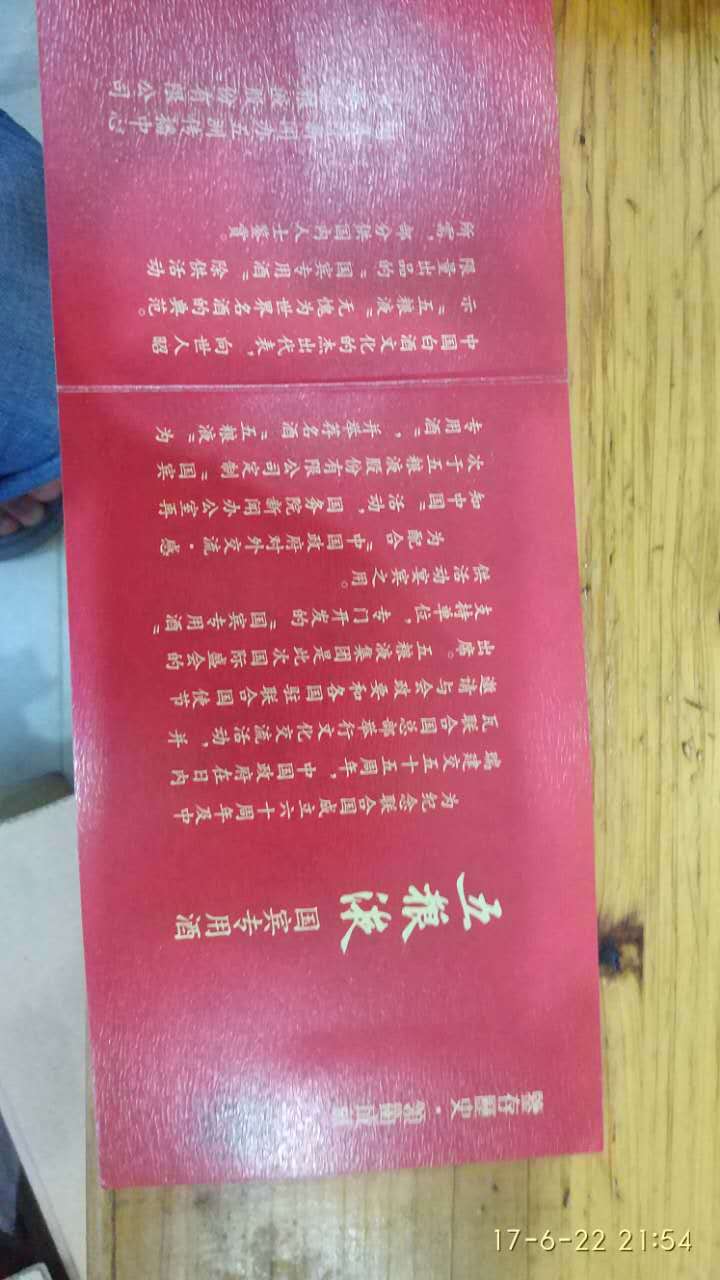 五粮液 国宾专用酒
为纪念联合国成立六十周年及中
瑞建交五十五周年，中国政府在日内
瓦联合国总部举行文化交流活动，并
邀请与会政要和各国驻联合国使节
出席。五粮液集团是此次国际盛会的
支持单位，专门开发的“国宾专用酒”
供活动宴宾之用。
为配合“中国政府对外交流·感
知中国”活动，国务院新闻办公室再
次于五粮液股份有限公司定制“国宾
专用酒”，并举荐名酒“五粮液”为
中国白酒文化的杰出代表，向世人昭
示“五粮液”无愧为世界名酒的典范。
限量出品的“国宾专用酒”除供活动
所需，部分供国内人士鉴赏。
五洲传播中心
股份有限公司
17-6-22 21:54